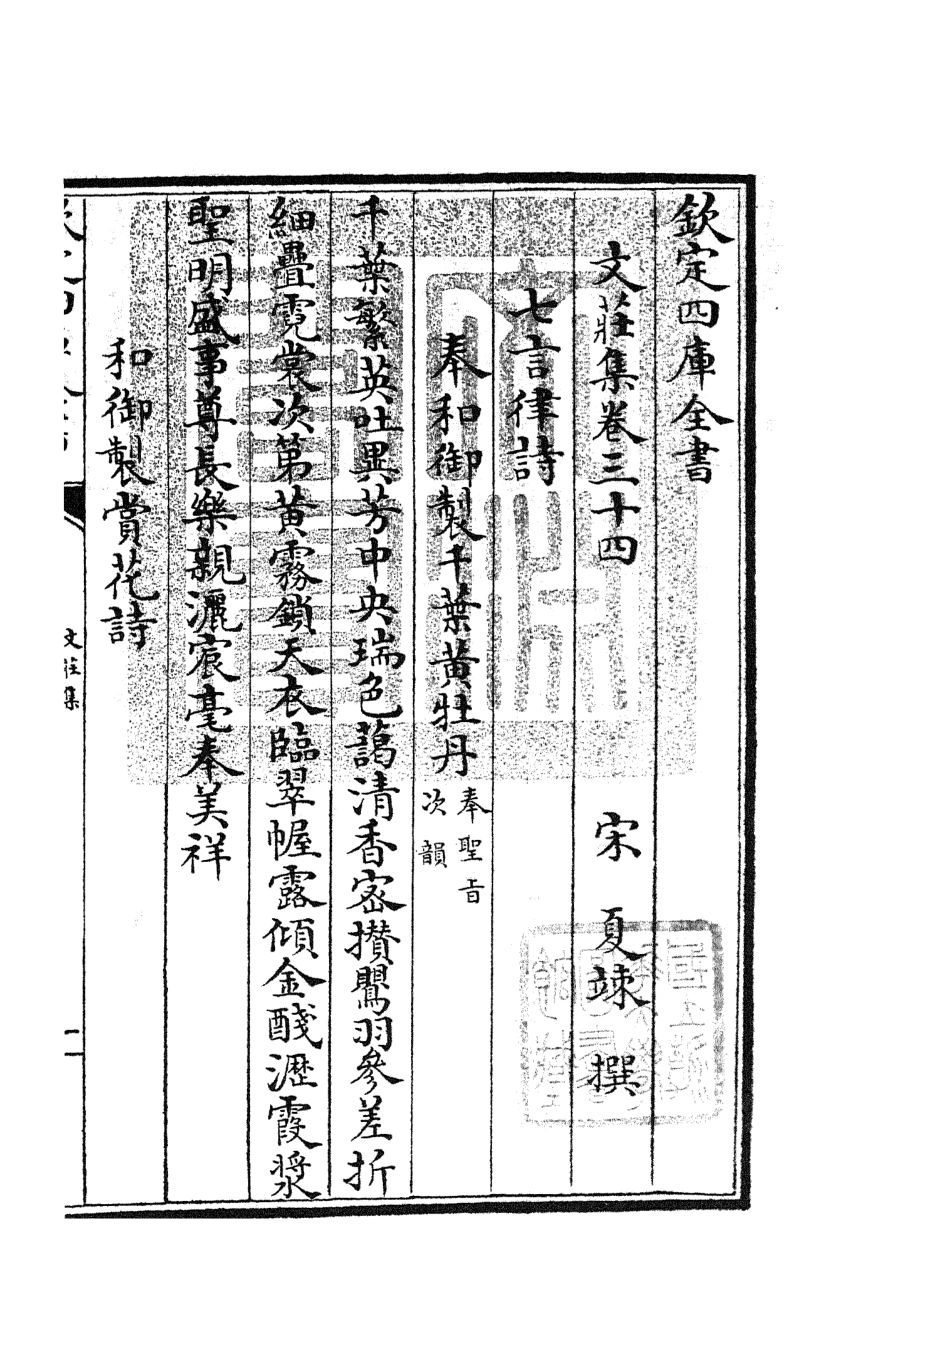 欽定四庫全書
文莊集卷三十四　宋　夏竦　撰
七言律詩
奉和御製千葉黄牡丹奉聖旨次韻
千葉繁英吐異芳中央瑞色藹清香宻攅鸎羽參差折
細疊霓裳次第黄霧鎖天衣臨翠幄露傾金醆瀝霞漿
聖明盛事尊長樂親灑宸毫奉美祥
和御製賞花詩
文莊集
一